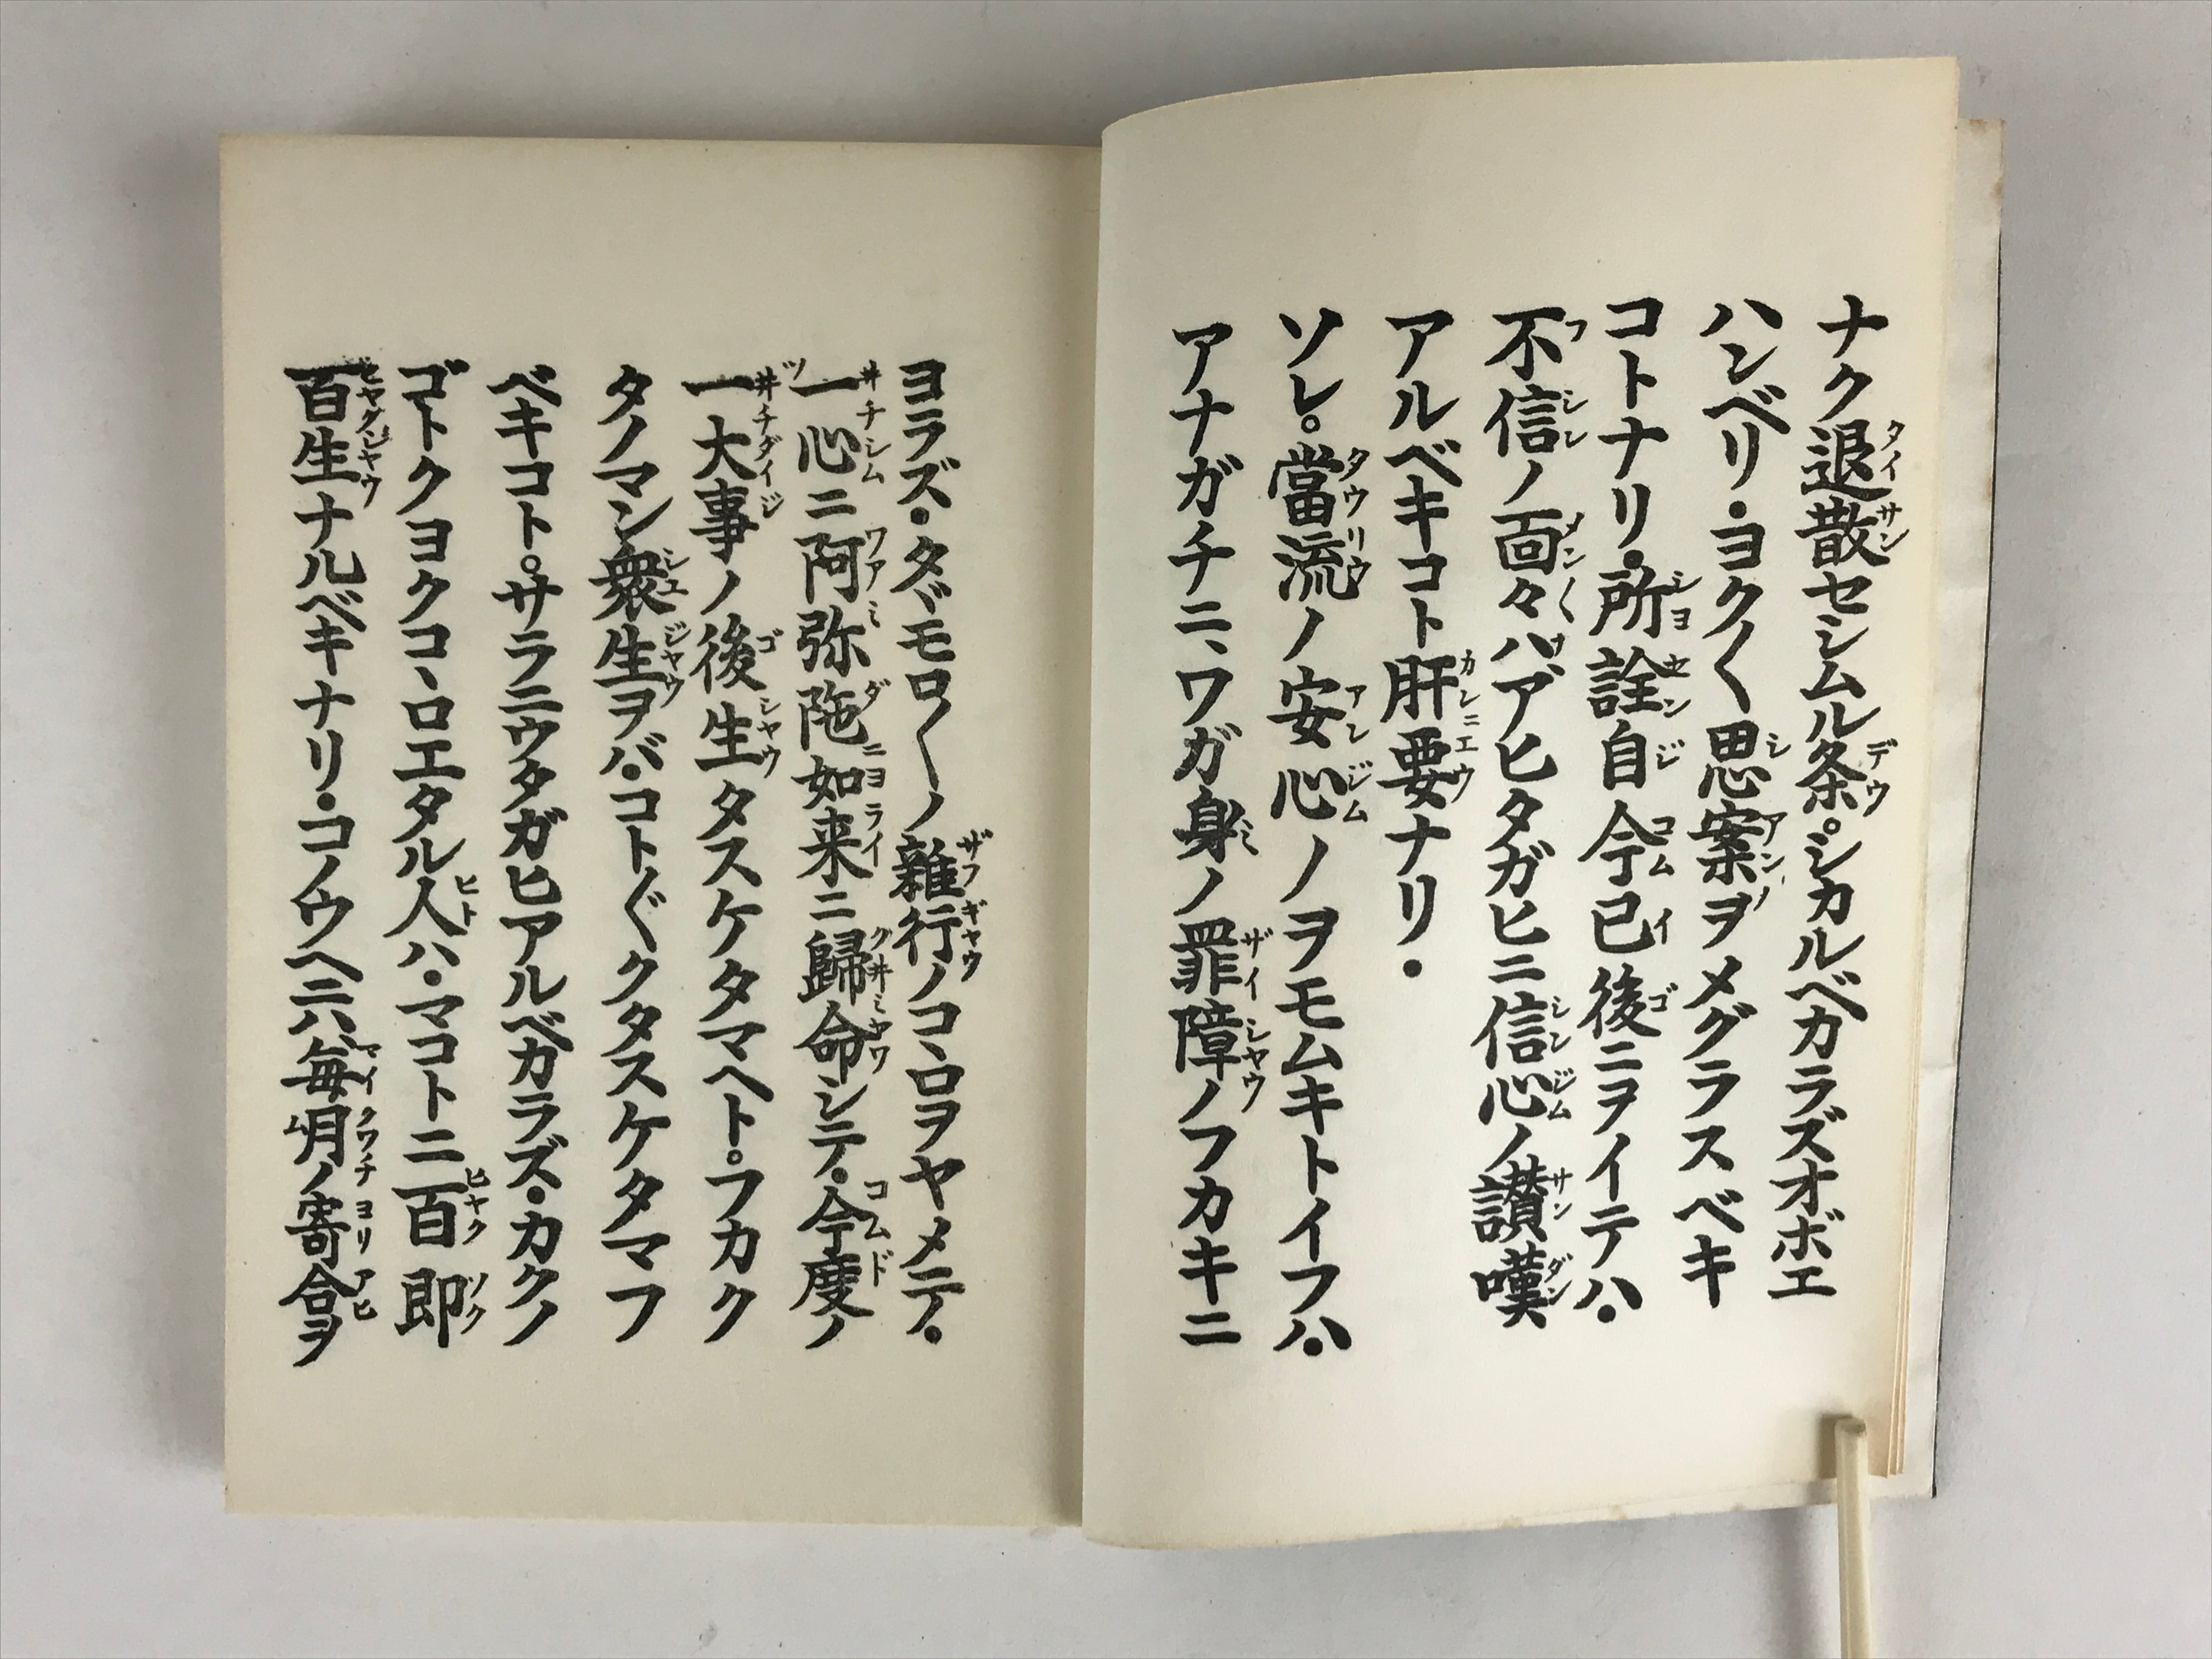 ナク退散セシムル条。シカルベカラズオボエ
ハンベリ・ヨク〱思案ヲメグラスベキ
コトナリ・所詮自今已後ニヲイテハ・
不信ノ面々ハアヒタガヒニ信心ノ讃嘆
アルベキコト肝要ナリ・
ソレ。當流ノ安心ノヲモムキトイフハ・
アナガチニ、ワガ身ノ罪障ノフカキニ
ヨラズ・タヾモロ〱ノ雜行ノコヽロヲヤメテ・
一心ニ阿弥陁如来ニ歸命シテ・今度ノ
一大事ノ後生タスケタマヘト。フカク
タノマン衆生ヲバ・コト〲クタスケタマフ
ベキコト。サラニウタガヒアルベカラズ・カクノ
ゴトクヨクコヽロエタル人ハ・マコトニ百即
百生ナルベキナリ・コノウヘニハ毎月ノ寄合ヲ